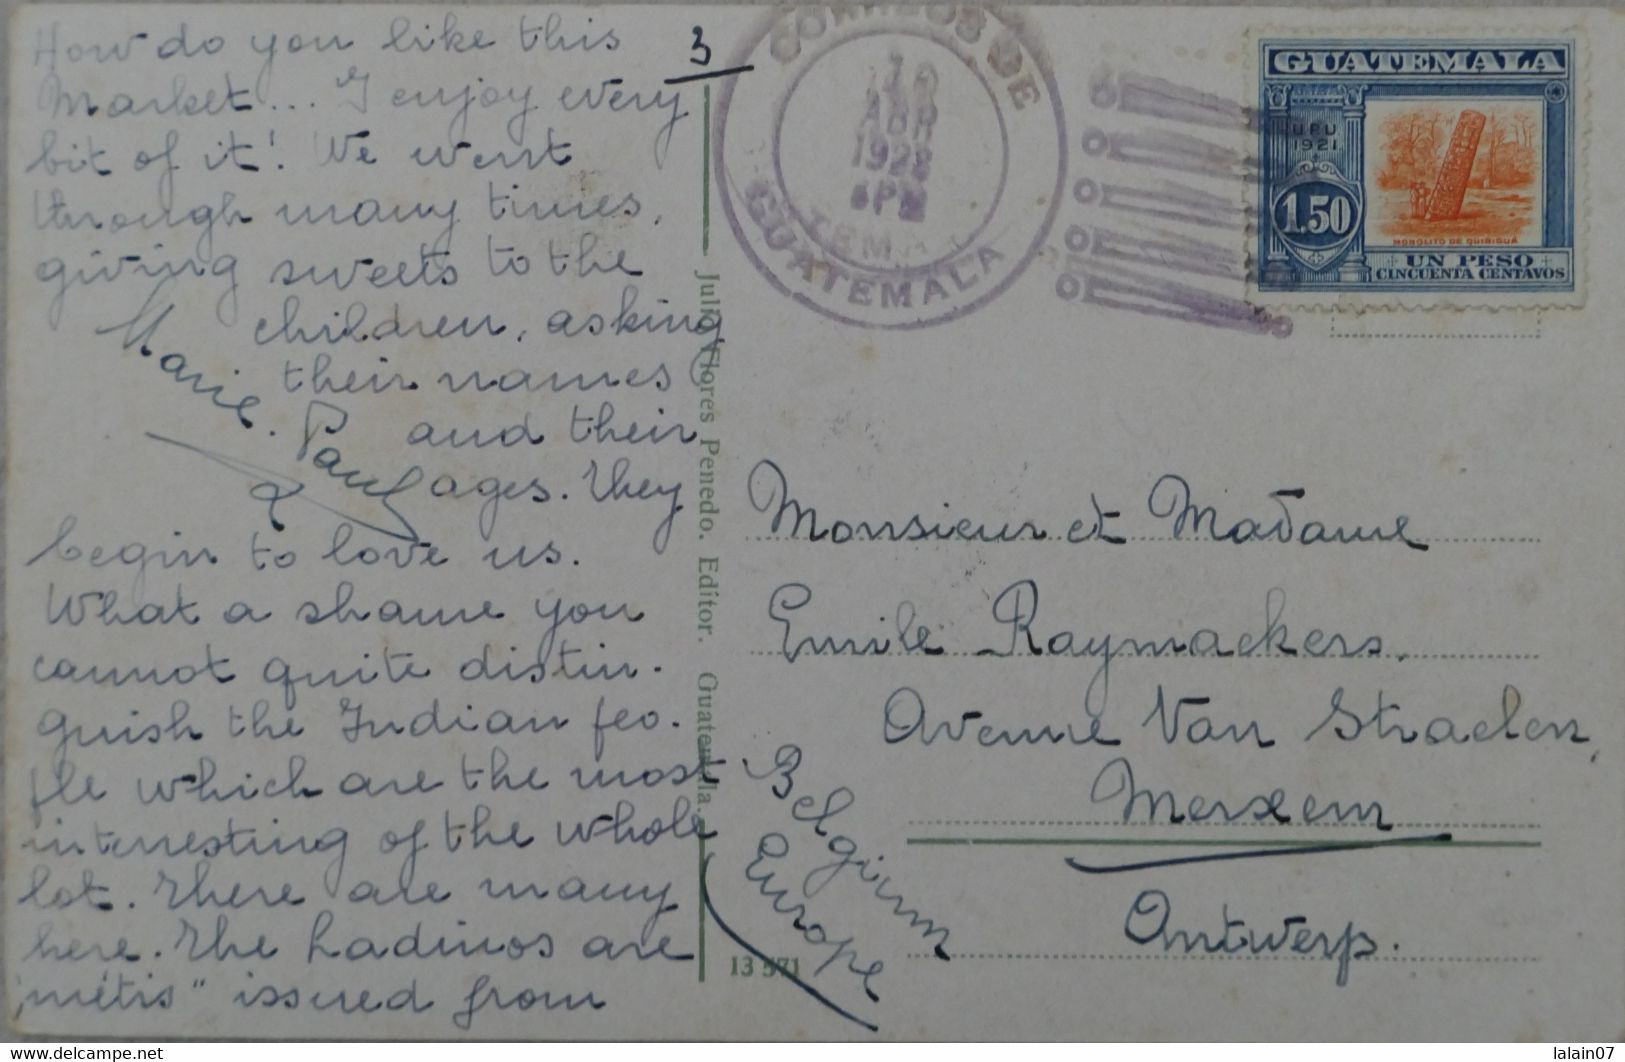 How do you like this
Market... I enjoy every
bit of it! We went
through many times,
giving sweets to the
children, asking
their names
and their
ages. They
begin to love us.
What a shame you
cannot quite distin-
guish the Indian peo-
ple which are the most
interesting of the whole
lot. There are many
here. The Ladinos are
„métis" issued from
Marie. Paul
3
Julio Flores Penedo. Editor. Guatemala.
13 571
CORREOS DE
GUATEMALA
ABR
1928
PM
GUATEMALA
UPU
1921
1.50
MONOLITO DE QUIRIGUÁ
UN PESO
CINCUENTA CENTAVOS
Monsieur et Madame
Emile Raymackers.
Avenue Van Straelen,
Merxem
Antwerp.
Belgium
Europe
www.delcampe.net
lalain07